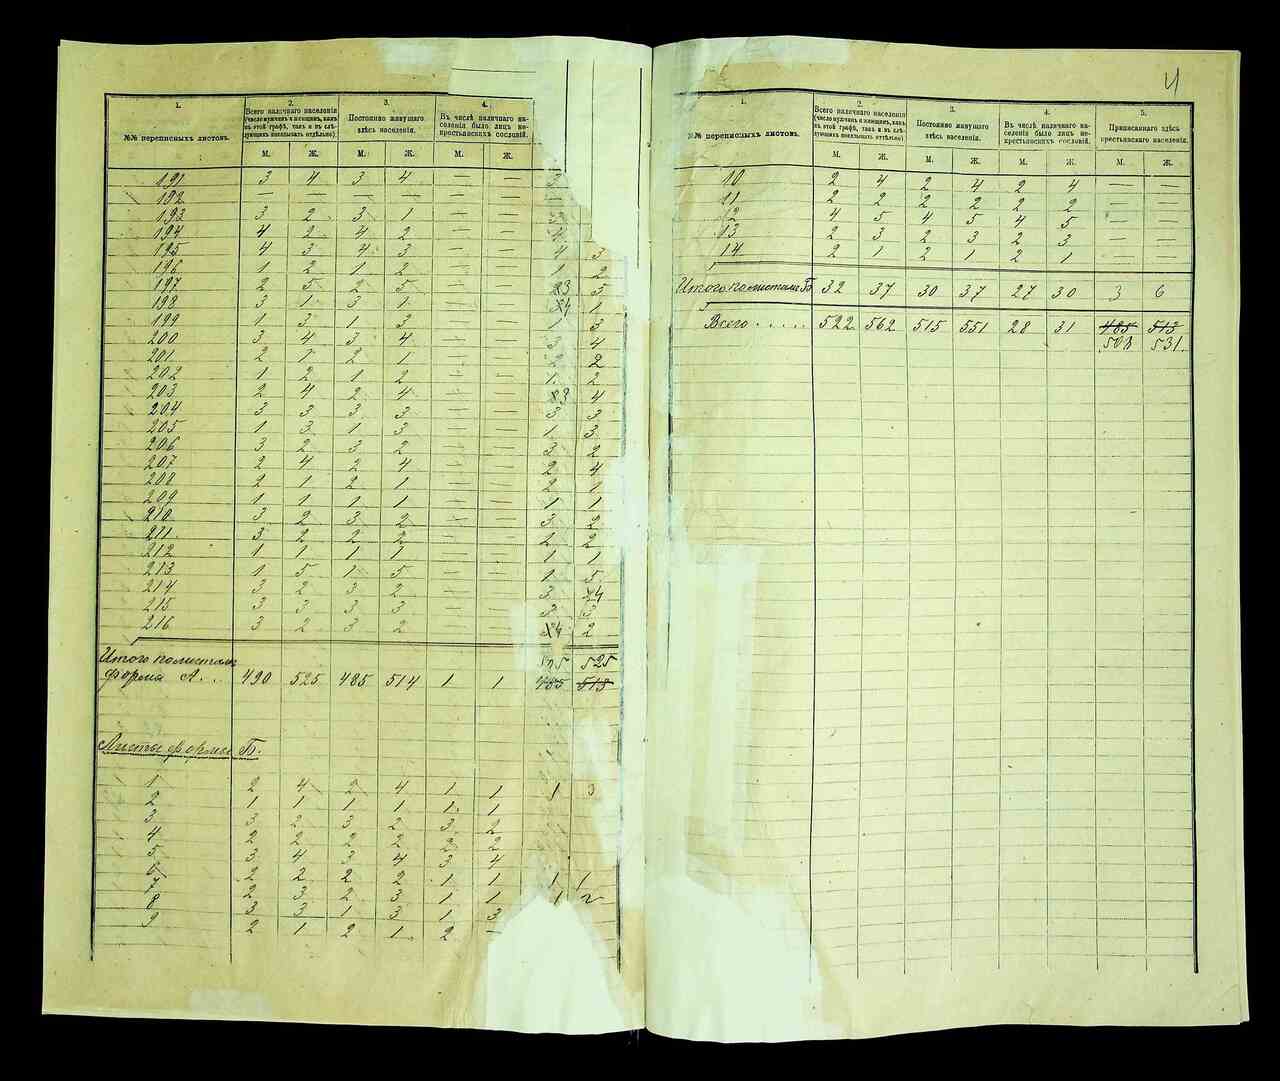 4
1.
2.
3.
4.
№№ переписныхъ листовъ.
Всего наличнаго населенія
(число мужчинъ и женщинъ, какъ
въ этой графѣ, такъ и въ слѣ-
дующихъ показывать отдѣльно)
Постоянно живущаго
здѣсь населенія.
Въ числѣ наличнаго на-
селенія было лицъ не-
крестьянскихъ сословій.
М. Ж. М. Ж. М. Ж.
191 3 4 3 4 — —
192 — — — — — —
193 3 2 3 1 — —
194 4 2 4 2 — —
195 4 3 4 3 — — 4 3
196 1 2 1 2 — — 1 2
197 2 5 2 5 — — 3 5
198 3 1 3 1 — — 4 1
199 1 3 1 3 — — 1 3
200 3 4 3 4 — — 3 4
201 2 1 2 1 — — 2 2
202 1 2 1 2 — — 1 2
203 2 4 2 4 — — 3 4
204 3 3 3 3 — — 3 3
205 1 3 1 3 — — 1 3
206 3 2 3 2 — — 3 2
207 2 4 2 4 — — 2 4
208 2 1 2 1 — — 2 1
209 1 1 1 1 — — 1 1
210 3 2 3 2 — — 3 2
211 3 2 2 2 — — 2 2
212 1 1 1 1 — — 1 1
213 1 5 1 5 — — 1 5
214 3 2 3 2 — — 3 4
215 3 3 3 3 — — 3 3
216 3 2 3 2 — — 4 2
Итого по листамъ 525
форма А... 490 525 485 514 1 1 485 513
Листы формы Б.
1 2 4 2 4 1 1 1 3
2 1 1 1 1 1 1
3 3 2 3 2 3 2
4 2 2 2 2 2 2
5 3 4 3 4 3 4
6 2 2 2 2 1 1 1 1
7 2 3 2 3 1 1 1 2
8 3 3 1 3 1 3
9 2 1 2 1 2
1.
2.
3.
4.
5.
№ переписныхъ листовъ.
Всего наличнаго населенія
(число мужчинъ и женщинъ, какъ
въ этой графѣ, такъ и въ слѣ-
дующихъ показывать отдѣльно)
Постоянно живущаго
здѣсь населенія.
Въ числѣ наличнаго на-
селенія было лицъ не-
крестьянскихъ сословій.
Приписаннаго здѣсь
крестьянскаго населенія.
М. Ж. М. Ж. М. Ж. М. Ж.
10 2 4 2 4 2 4 — —
11 2 2 2 2 2 2 — —
12 4 5 4 5 4 5 — —
13 2 3 2 3 2 3 — —
14 2 1 2 1 2 1 — —
Итого по листамъ Б 32 37 30 37 27 30 3 6
Всего..... 522 562 515 551 28 31 485 513
508 531.